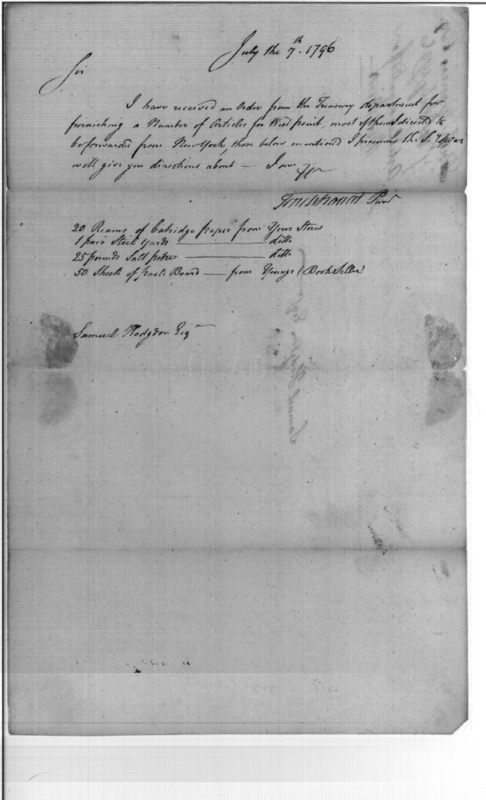 July the 7th. 1796
Sir
I have received an Order from the Treasury department for
furnishing a Number of Articles for West point, most of them directed to
be forwarded from New York, those below mentioned I presume the
will give you directions about — I am
20 Reams of Catridge paper from Yours Store
1 pair Steel yards ——— ditto
25 pounds Salt petre ——— ditto
50 Sheets of paste Board —— from Youngs Book Seller
Samuel Hodgdon Esqr